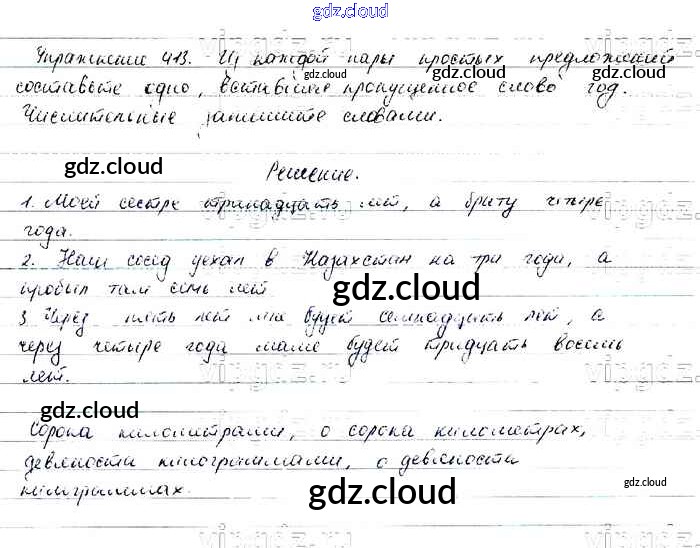 gdz.cloud
Упражнение 413. Из каждой пары простых предложений
gdz.cloud gdz.cloud
составьте одно, вставляя пропущенное слово год.
Числительные запишите словами.
gdz.cloud
Решение.
1. Моей сестре тринадцать лет, а брату четыре
года.
2. Наш сосед уехал в Казахстан на три года, а
пробыл там семь лет
gdz.cloud
3. Через пять лет мне будет семнадцать лет, а
через четыре года маме будет тридцать восемь
лет.
gdz.cloud
Сорока километрами, о сорока километрах,
девяноста килограммами, о девяноста
килограммах.
gdz.cloud
gdz.cloud